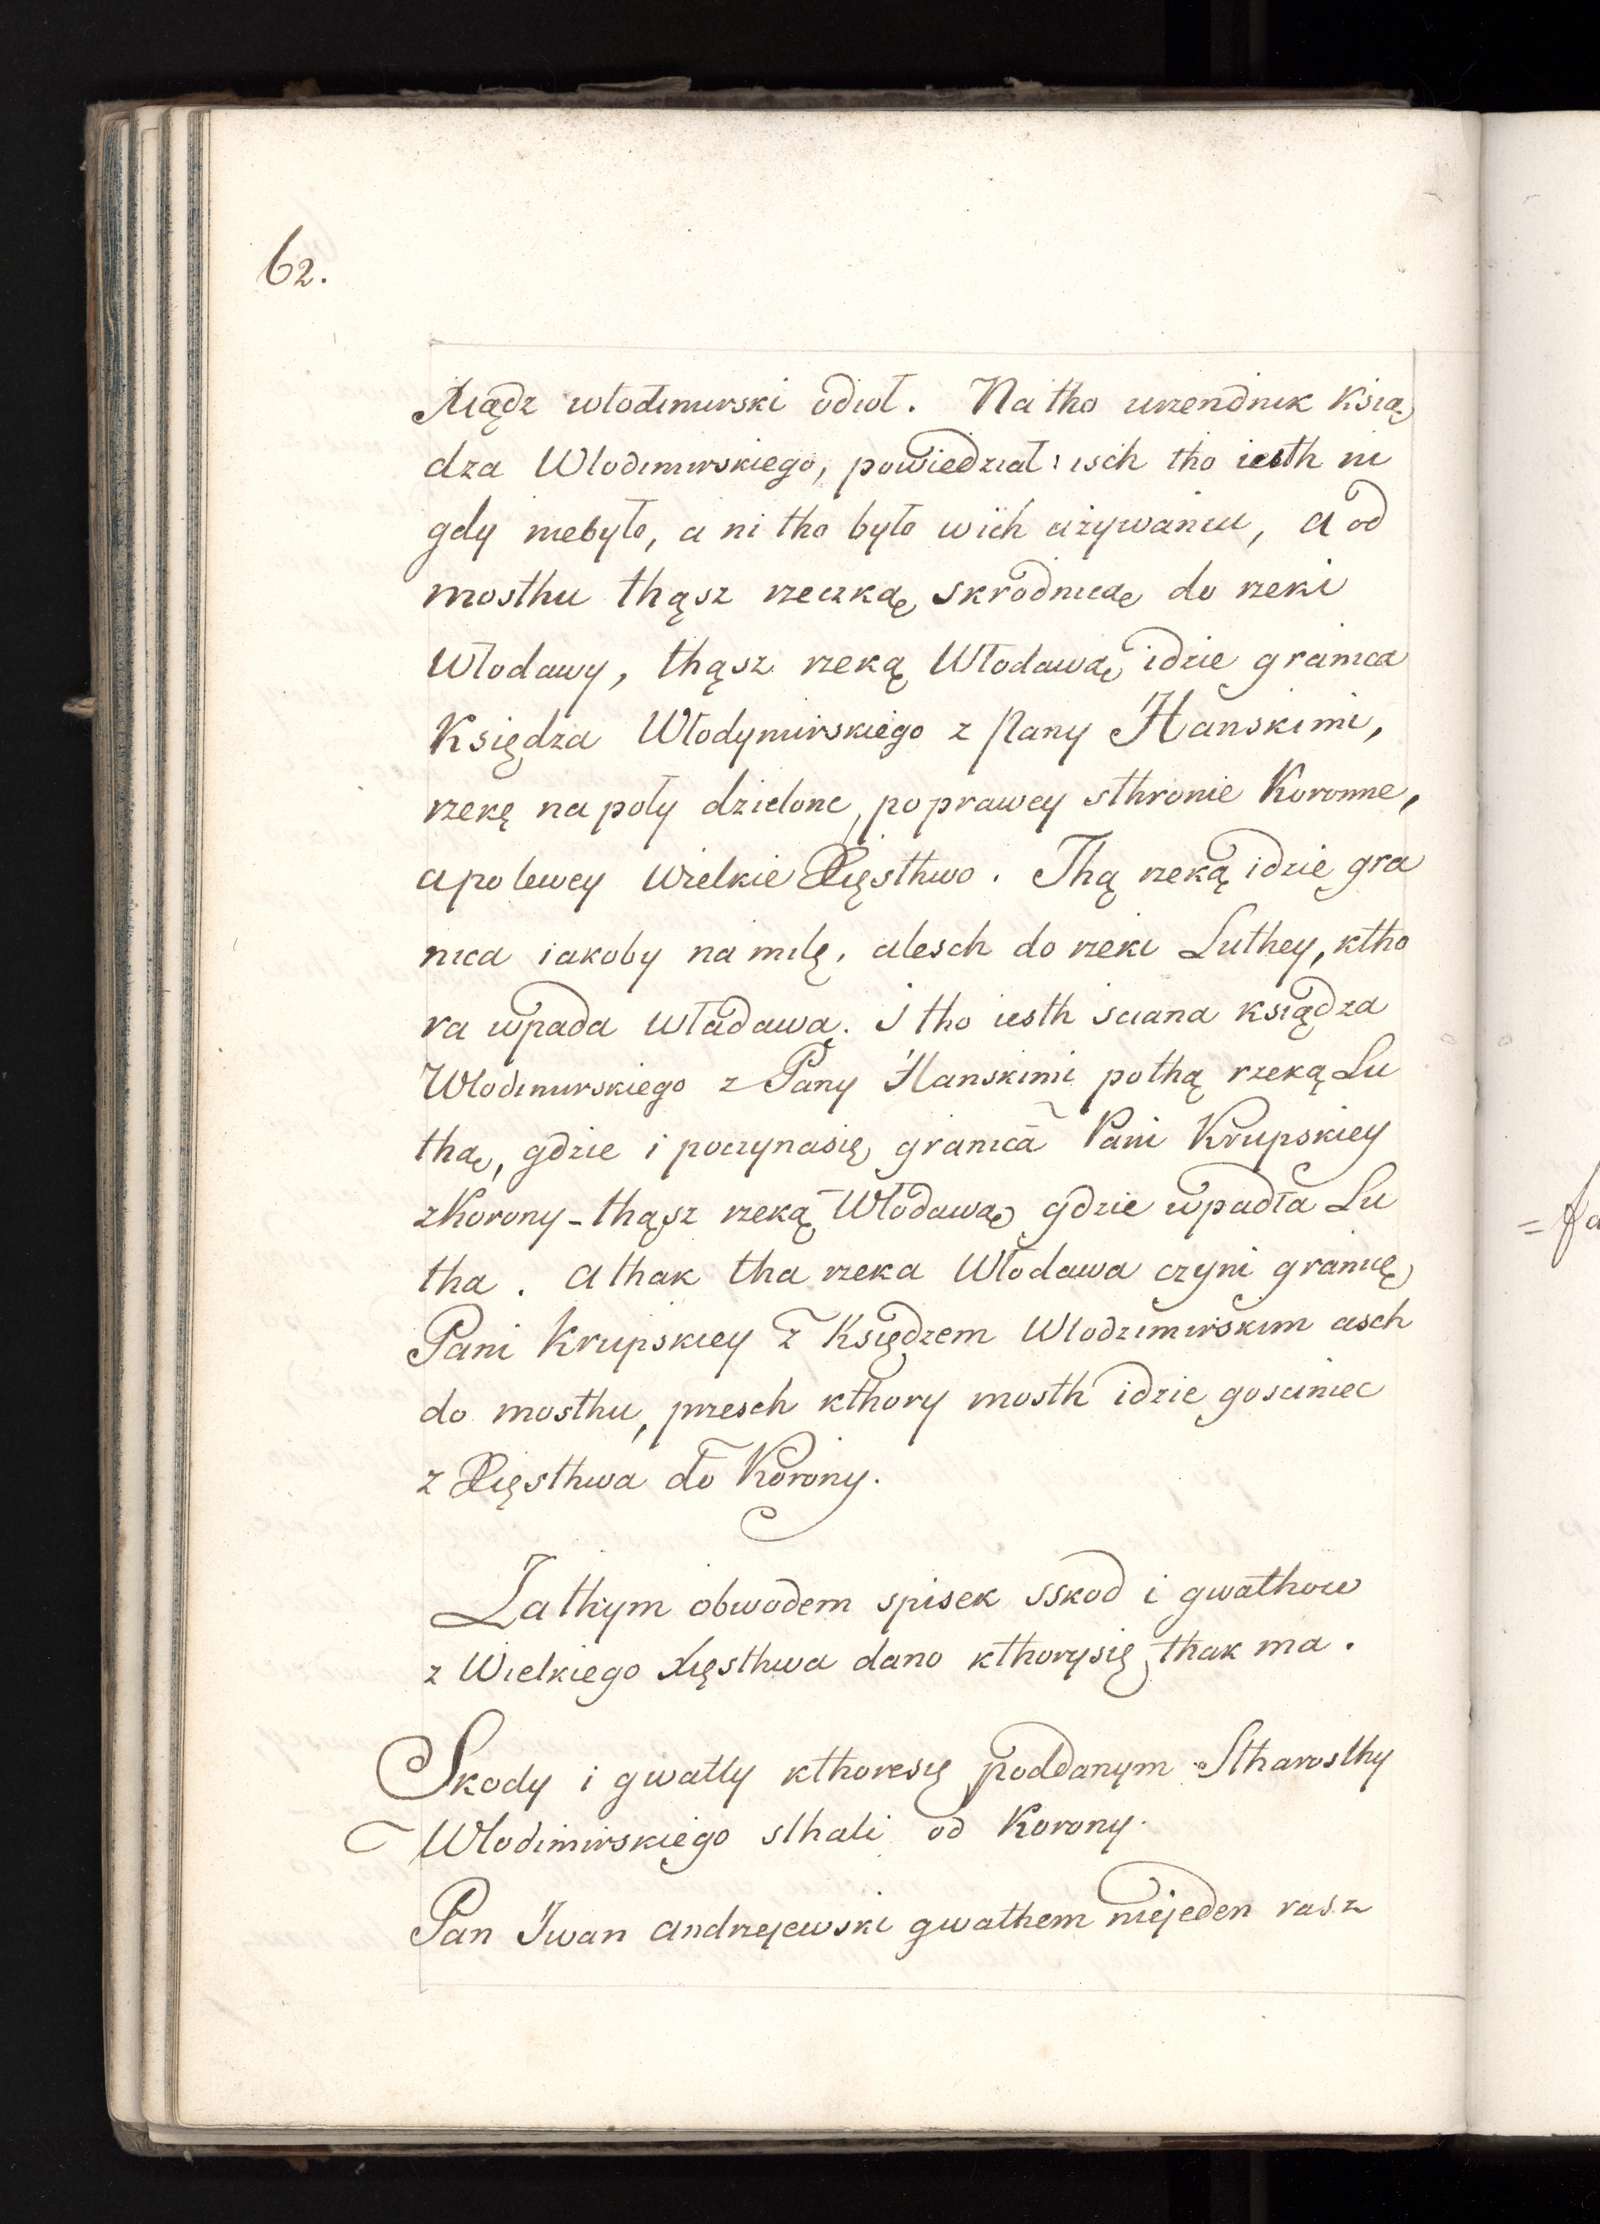 62.
Xiądz włodimirski odiół. Na tho urzendnik Ksią
dza Wlodimirskiego, powiedział: isch tho iesth ni
gdy niebyło, a ni tho było wich użÿwaniu, a od
mosthu thąsz rzeczką skrodnicą do rzeki
Włodawy, thąsz rzeką Włodawą idzie granica
Księdza Włodymirskiego z Pany Hanskimi,
rzekę na poły dzielone, poprawey sthronie Koronne,
a polewey Wielkie Xięsthwo. Thą rzeką idzie gra
nica iakoby na milę, alesch do rzeki Luthey, ktho
ra wpada Władawą. I tho iesth sciana księdza
Wlodimirskiego z Pany Hanskimi pothą rzeką Lu
thą, gdzie i poczynasię granica Pani Krupskiey
z Korony - thąsz rzeką Włodawą gdzie wpadła Lu
tha. A thak tha rzeka Włodawa czyni granicę
Pani Krupskiey z Księdzem Wlodzimirskim asch
do mosthu, przesch kthory mosth idzie gosciniec
z Xięsthwa do Korony.
Zathym obwodem spisek sskod i gwathow
z Wielkiego Xięsthwa dano kthorysię thak ma.
Skody i gwałty kthoresię poddanym Stharosthy
Wlodimirskiego sthali od Korony.
Pan Iwan Andrzejewski gwathem niejeden rasz
= fa